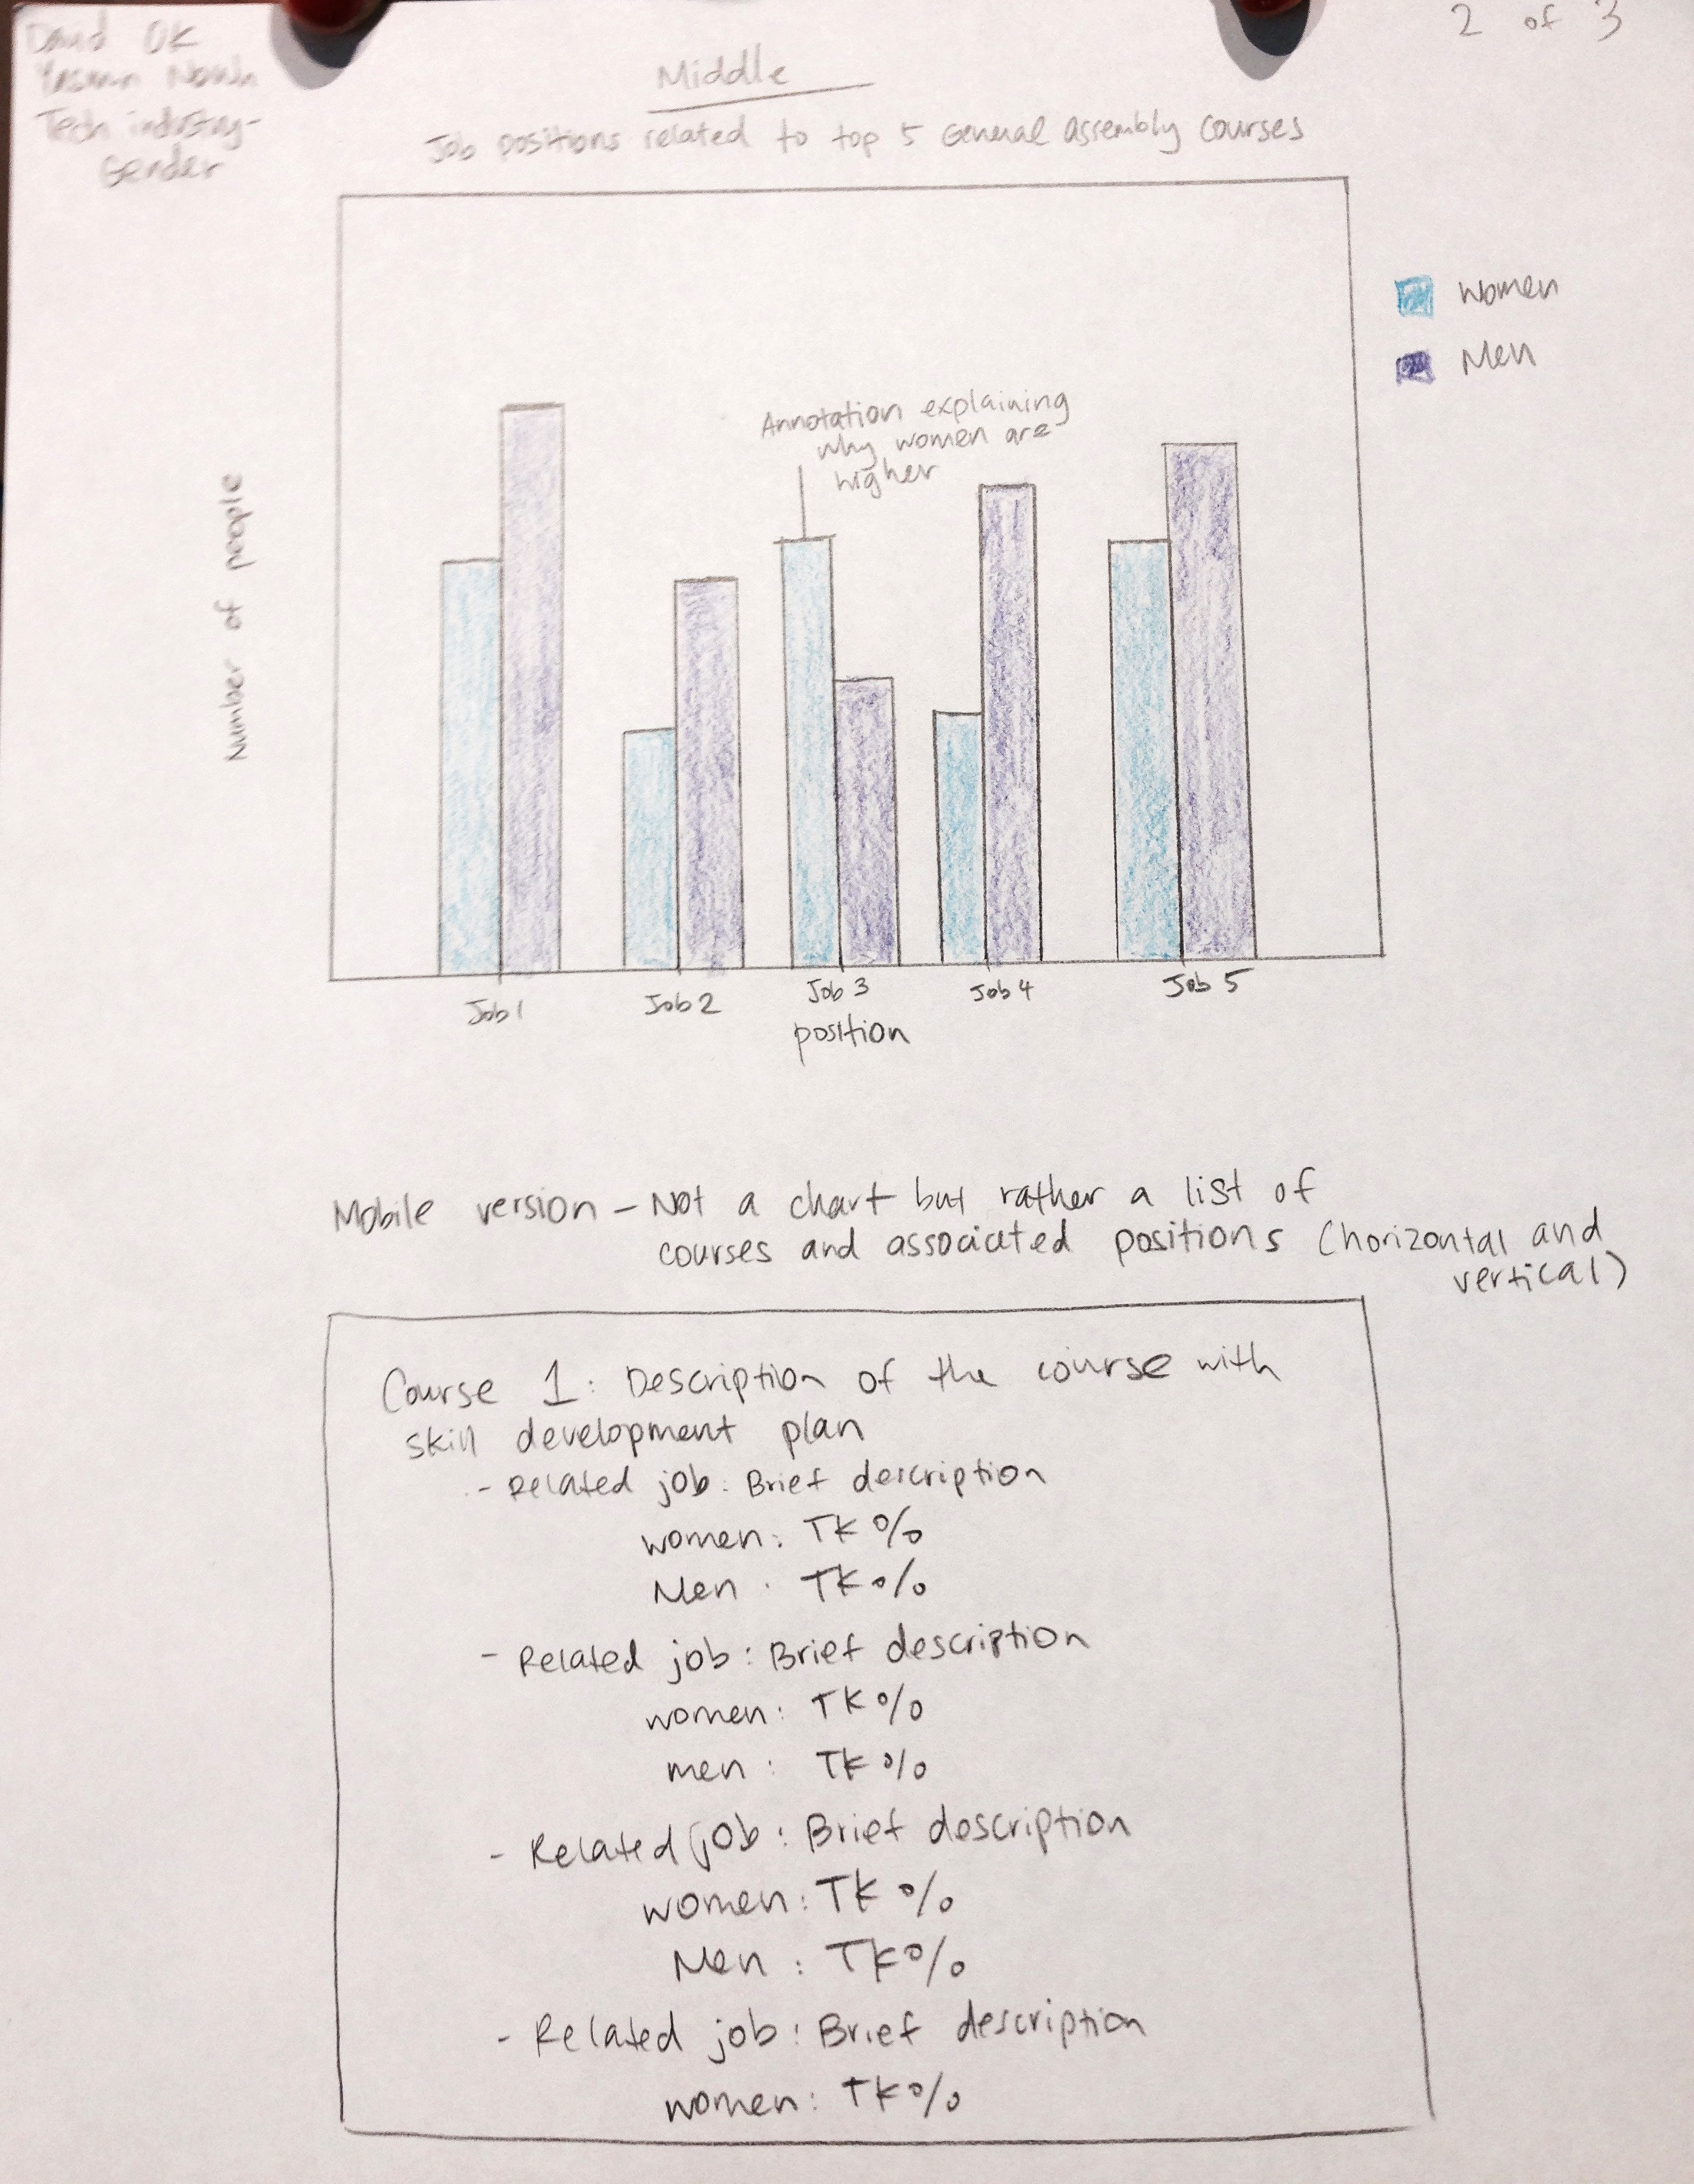 David OK
Yasmin
Tech industry-
Gender
2 of 3
Middle
Job positions related to top 5 General Assembly courses
women
Men
Annotation explaining
why women are
higher
Number of people
Job 1
Job 2
Job 3
Job 4
Job 5
position
Mobile version - Not a chart but rather a list of
courses and associated positions (horizontal and
vertical)
Course 1: Description of the course with
skill development plan
- Related job: Brief description
women: TK%
Men : TK%
- Related job: Brief description
women: TK%
men : TK%
- Related job: Brief description
women: TK%
Men : TK%
- Related job: Brief description
women: TK%